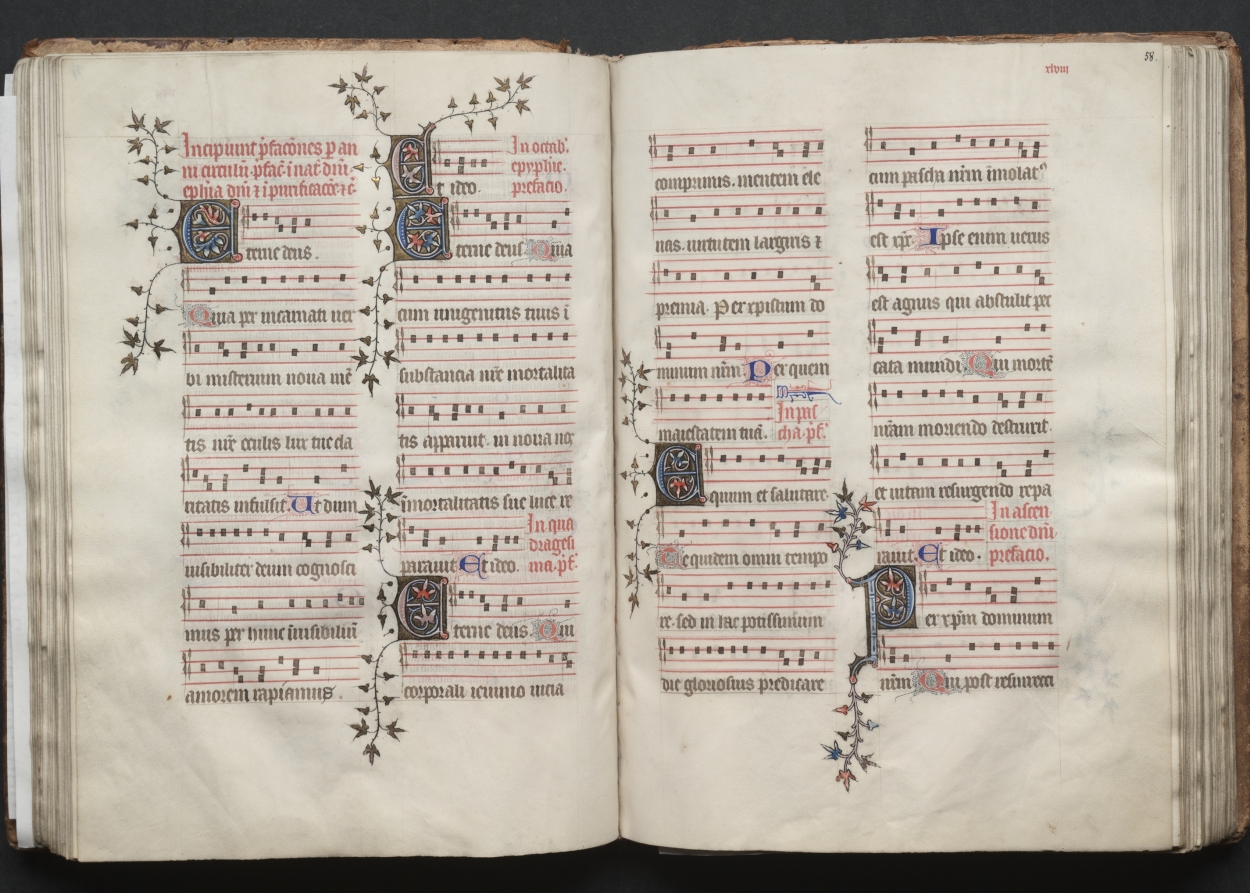 Incipiunt p̄facōnes p an
ni circulū. p̄fac̄ i nat̄ dn̄i.
ephīa dn̄i ⁊ ī purificacōe ⁊c̄
Eterne deus.
Quia per incarnati ver
bi misterium noua mē
tis nr̄e oculis lux tue cla
ritatis infulsit. Ut dum
uisibiliter deum cognosci
mus per hunc īuisibiliū
amorem rapiamus.
Et ideo.
In octab'.
epyphīe.
prefacio.
Eterne deus. Quia
cum unigenitus tuus ī
substancia nr̄e mortalita
tis apparuit. in noua nos
īmortalitatis sue luce re
parauit. Et ideo.
In qua
dragesi
ma. pf̄.
Eterne deus. Qui
corporali ieiunio uicia
58.
xlviii
comprimis. mentem ele
uas. uirtutem largiris ⁊
premia. Per xpistum do
minum nr̄m. Per quem
maiestatem tuā.
In pas
cha. pf̄.
Equum et salutare.
Te quidem omni tempo
re. sed in hac potissimum
die gloriosius predicare
cum pascha nr̄m īmolat'
est xp̄c. Ipse enim uerus
est agnus qui abstulit pec
cata mundi. Qui mortē
nr̄am moriendo destruxit.
et uitam resurgendo repa
rauit. Et ideo.
In ascen
sione dn̄i
prefacio.
Per xp̄m dominum
nr̄m. Qui post resurrecti